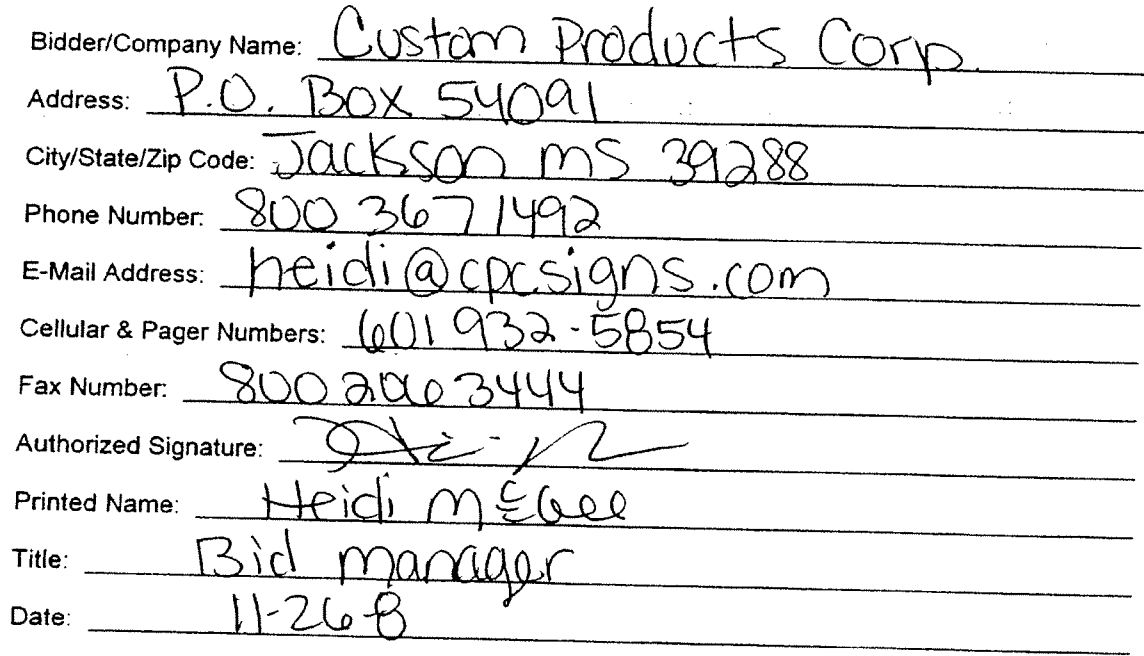 Bidder/Company Name: Custom Products Corp.
Address: P.O. Box 54091
City/State/Zip Code: Jackson MS 39288
Phone Number: 800 367 1492
E-Mail Address: heidi@cpcsigns.com
Cellular & Pager Numbers: 601 932-5854
Fax Number: 800 206 3444
Authorized Signature:
Printed Name: Heidi McGee
Title: Bid manager
Date: 11-26-